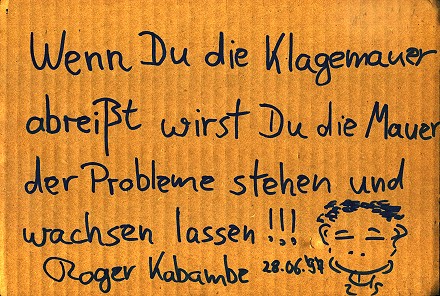 Wenn Du die Klagemauer
abreißt wirst Du die Mauer
der Probleme stehen und
wachsen lassen !!!
Roger Kabambe 28.06.'97